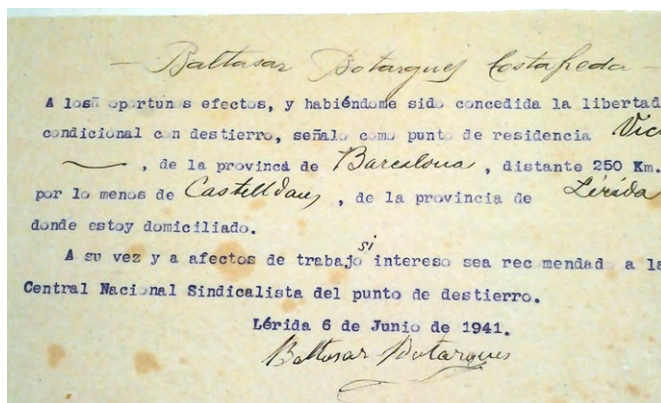 — Baltasar Botargues Costafreda —
A losñ oportunos efectos, y habiéndome sido concedida la libertad
condicional con destierro, señalo como punto de residencia Vich
—, de la provinca de Barcelona, distante 250 Km.
por lo menos de Castelldans, de la provincia de Lérida
donde estoy domiciliado.
si
A su vez y a afectos de trabajo intereso sea rec mendad a la
Central Nacional Sindicalista del punto de destierro.
Lérida 6 de Junio de 1941.
Baltasar Botargues